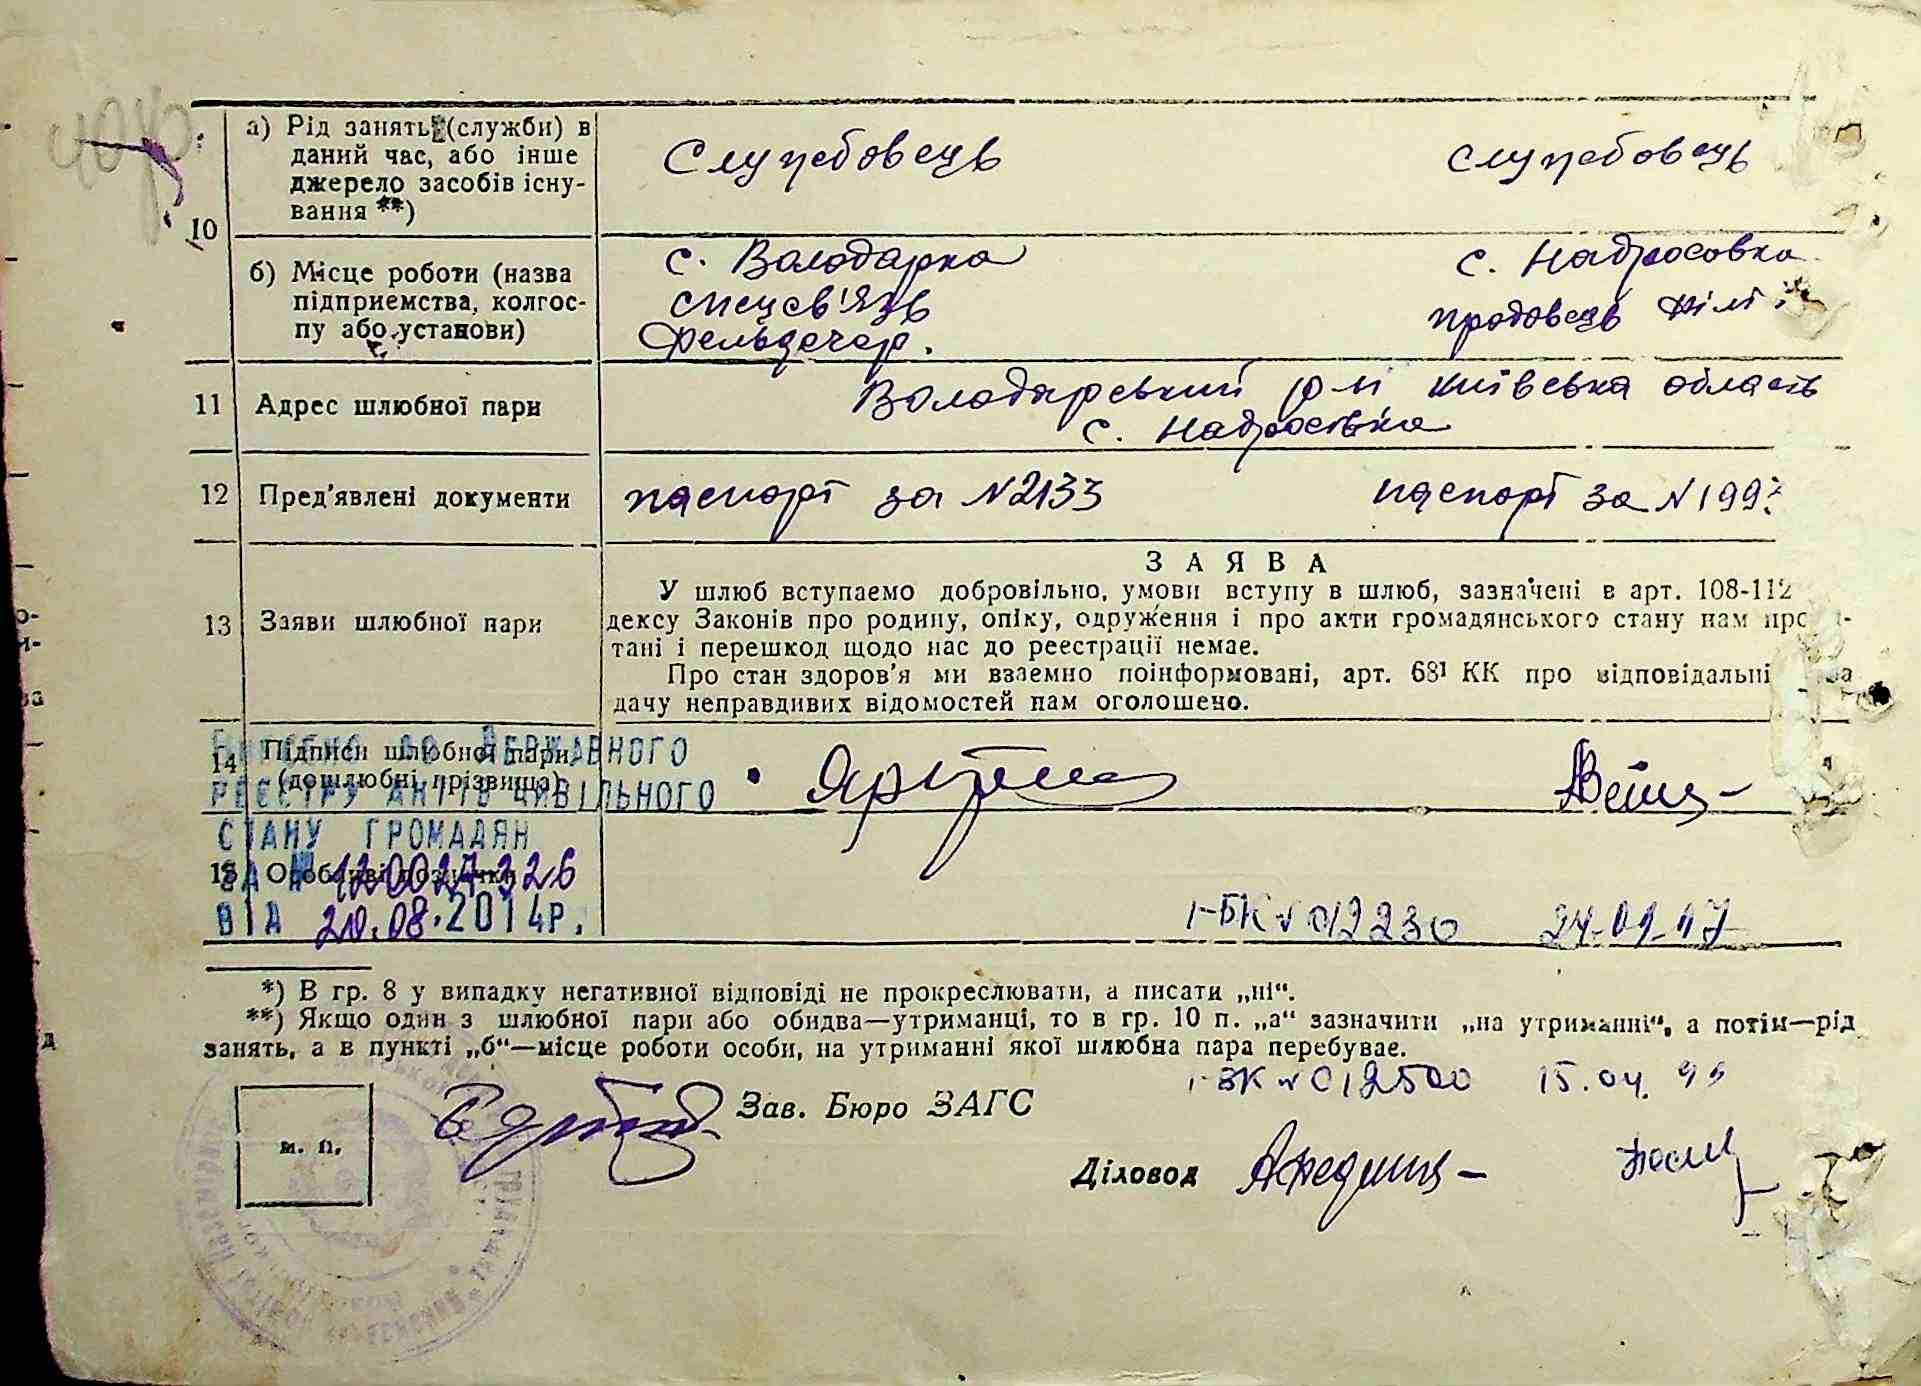 10
а) Рід занять (служби) в
даний час, або інше
джерело засобів існу-
вання **)
Служебовець
служебовець
б) Місце роботи (назва
підприємства, колгос-
пу або установи)
с. Володарка
спецсв'язь
Фельдєгер.
с. Надросовка
продовець
11 Адрес шлюбної пари
Володарський р-н Київська область
с. Надросівка
12 Пред'явлені документи
паспорт за №2133
паспорт за №199
13 Заяви шлюбної пари
ЗАЯВА
У шлюб вступаемо добровільно, умови вступу в шлюб, зазначені в арт. 108-112
дексу Законів про родину, опіку, одруження і про акти громадянського стану нам про
тані і перешкод щодо нас до реєстрації немае.
Про стан здоров'я ми взаемно поінформовані, арт. 68¹ КК про відповідальні
дачу неправдивих відомостей нам оголошено.
14 Підписи шлюбної пари
(дошлюбні прізвища)
Внесено до Державного
реєстру актів цивільного
стану громадян
15 Особливі позначки
за № 120027326
від 20.08.2014р.
І-БК № 012230 24-01-47
*) В гр. 8 у випадку негативної відповіді не прокреслювати, а писати „ні“.
**) Якщо один з шлюбної пари або обидва—утриманці, то в гр. 10 п. „а“ зазначити „на утриманні“, а потім—рід
занять, а в пункті „б“—місце роботи особи, на утриманні якої шлюбна пара перебувае.
І-БК № 012500 15.04.
м. п.
Зав. Бюро ЗАГС
Діловод